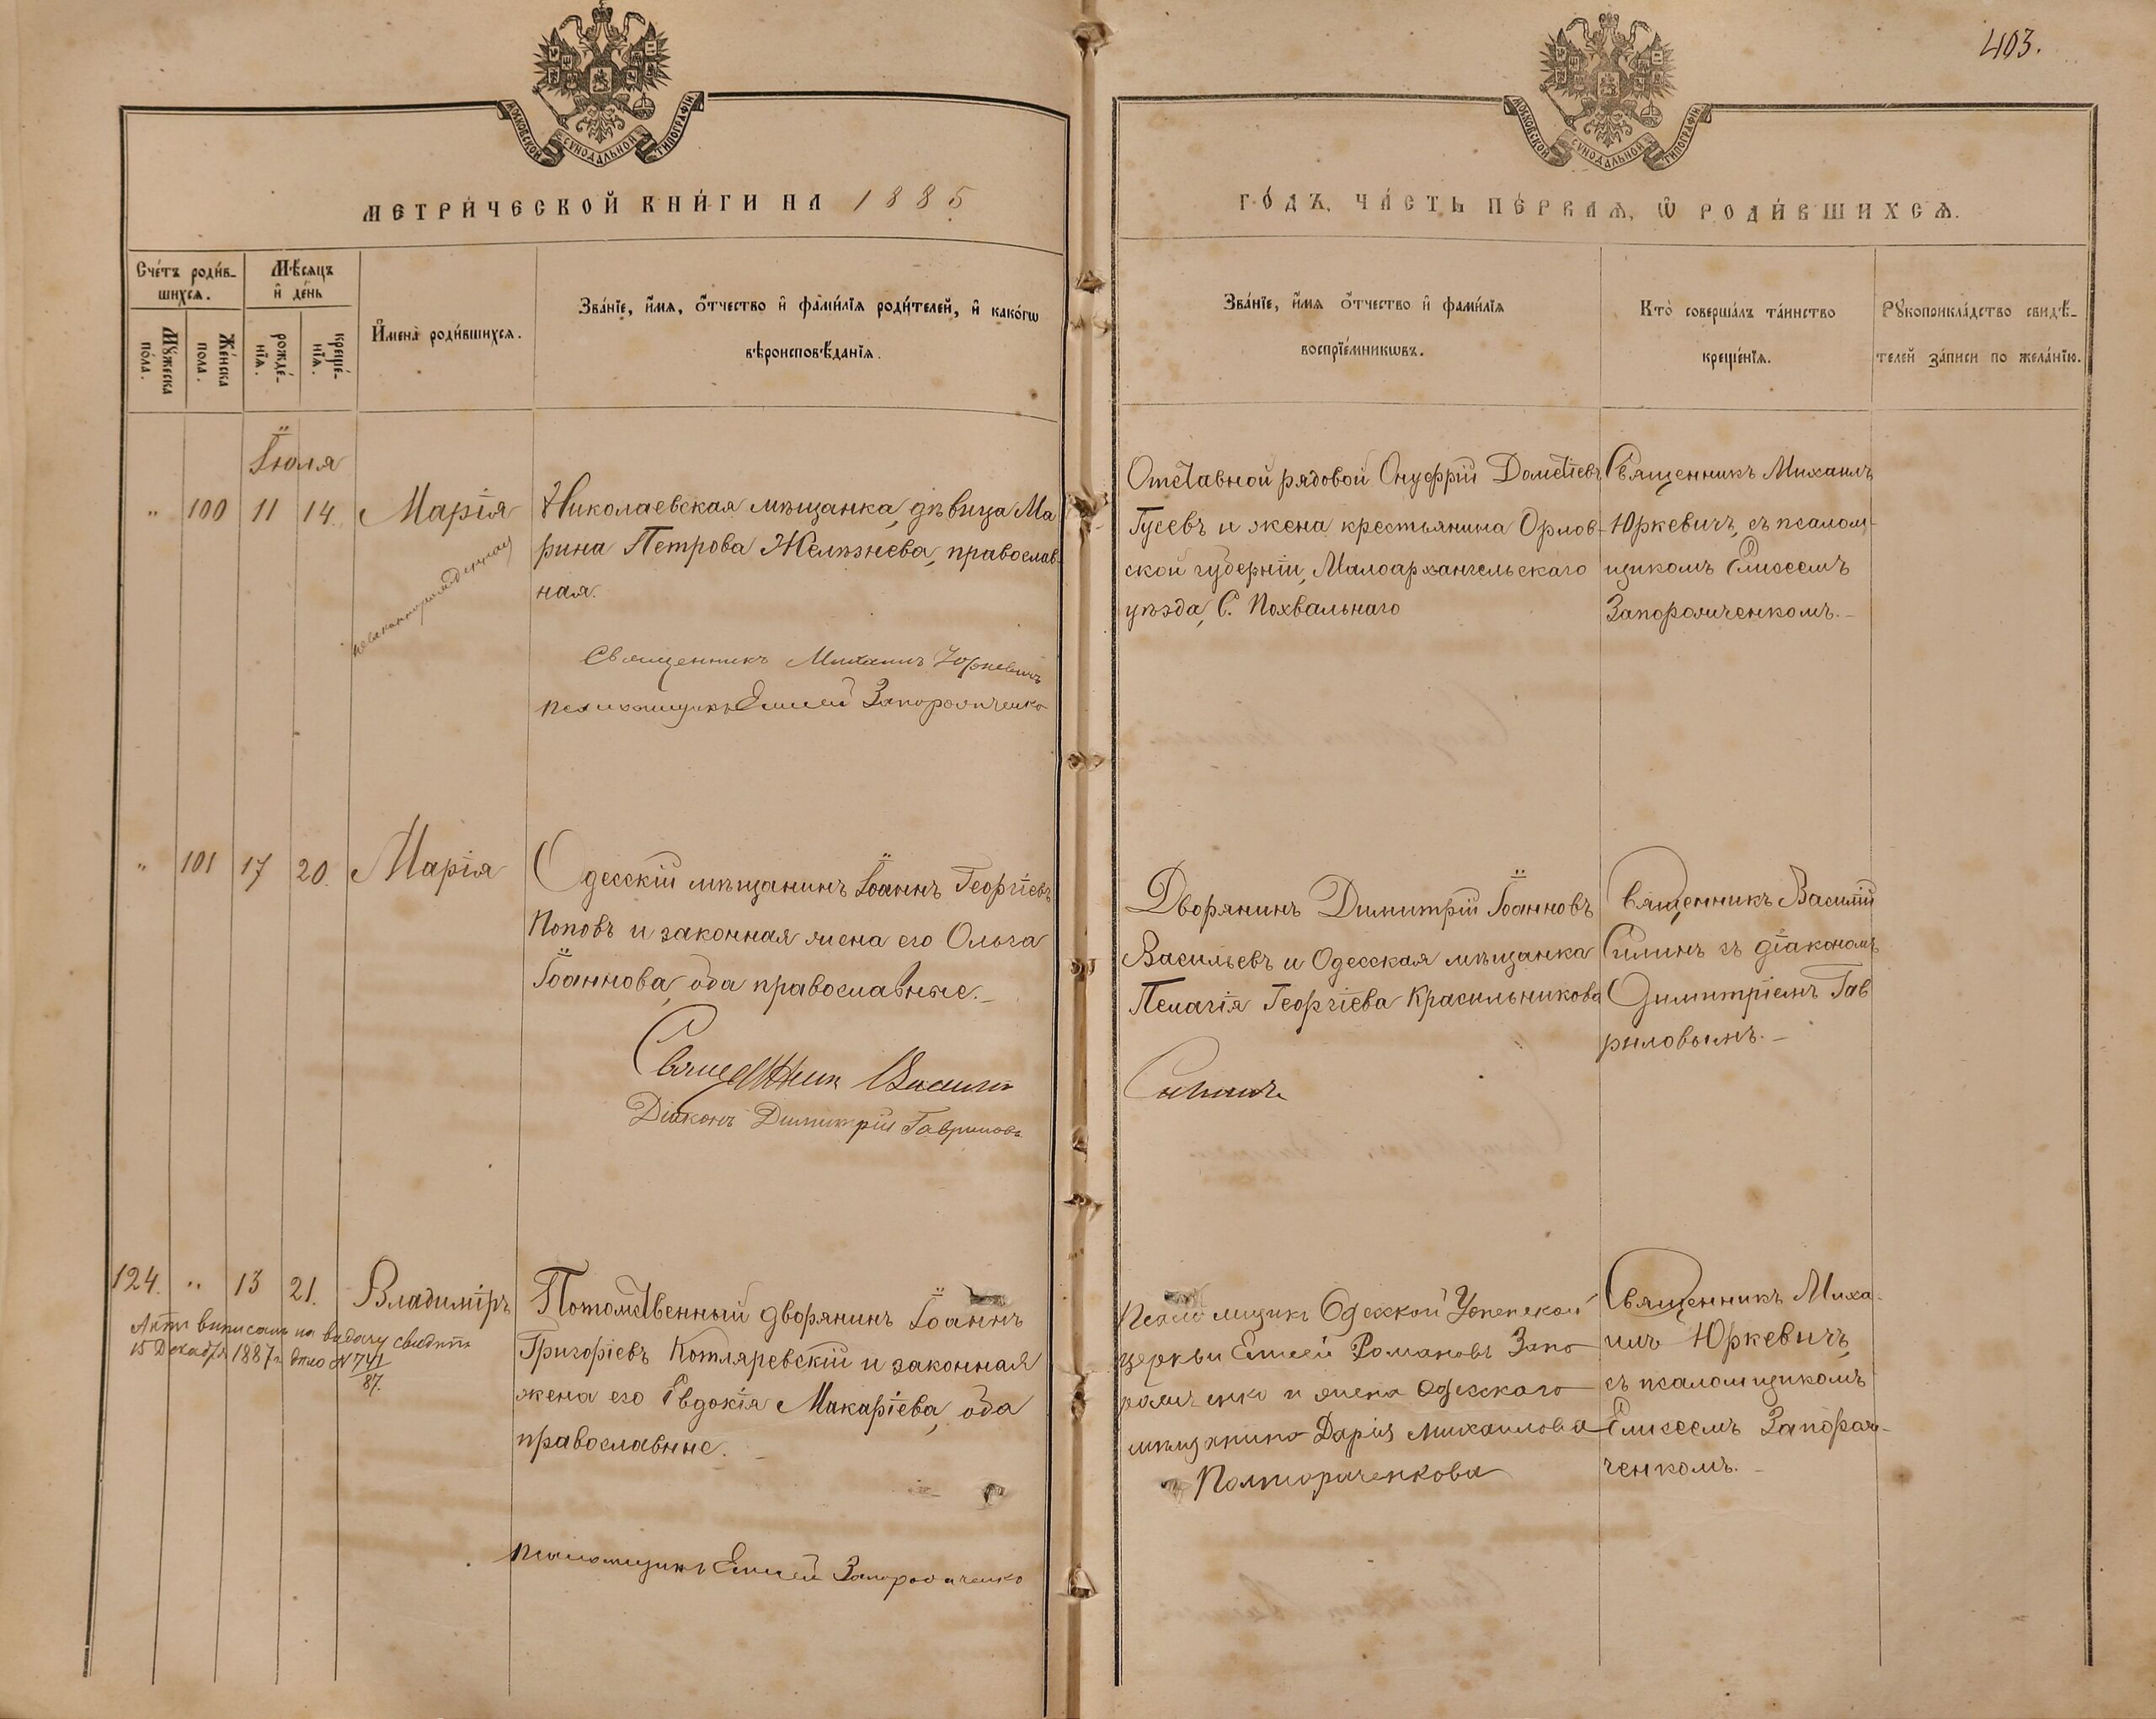 403.
МОСКОВСКОЙ СѴНОДАЛЬНОЙ ТИПОГРАФІИ
МОСКОВСКОЙ СѴНОДАЛЬНОЙ ТИПОГРАФІИ
МЕТРИ́ЧЕСКОЙ КНИ́ГИ НА 1885
ГО́ДЪ, ЧА́СТЬ ПЕ́РВАѦ, Ѽ РОДИ́ВШИХСѦ.
Сче́тъ роди́в-
шихсѧ.
Мꙋ́жеска
по́ла.
Же́нска
пола.
Мѣ́сѧцъ
и҆ де́нь
рожде́-
нїѧ.
креще́-
нїѧ.
И҆мена̀ роди́вшихсѧ.
Зва́нїе, и҆́мѧ, ѻ҆́тчество и҆ фами́лїѧ роди́телей, и҆ како́гѡ
вѣроисповѣ́данїѧ.
Зва́нїе, и҆́мѧ ѻ҆́тчество и҆ фами́лїѧ
воспрїе́мникѡвъ.
Кто̀ соверша́лъ та́инство
креще́нїѧ.
Рꙋкоприкла́дство свидѣ́-
телей за́писи по жела́нїю.
Іюля
" 100 11 14. Марія
незаконнорожденная
Николаевская мѣщанка, дѣвица Ма
рина Петрова Желѣзнева, православ
ная.
Священникъ Михаилъ Юркевичъ
Псаломщикъ Елисей Запорожченко
Отставной рядовой Онуфрій Дометіевъ
Гусевъ и жена крестьянина Орлов-
ской губерніи, Малоархангельскаго
уѣзда, С. Похвальнаго
Священникъ Михаилъ
Юркевичъ, съ псалом-
щикомъ Елисеемъ
Запорожченкомъ.
" 101 17 20. Марія
Одесскій мѣщанинъ Іоаннъ Георгіевъ
Поповъ и законная жена его Ольга
Іоаннова, оба православные.
Священник Василій
Діаконъ Димитрій Гавриловъ
Дворянинъ Димитрій Іоанновъ
Васильевъ и Одесская мѣщанка
Пелагія Георгіева Красильникова
Силинъ
Священникъ Василій
Силинъ съ діакономъ
Димитріемъ Гав
риловымъ.
124. " 13 21. Владиміръ
Актъ выписанъ на выдачу свидѣт
15 Декабря 1887 г. дѣло № 741/87.
Потомственный дворянинъ Іоаннъ
Григоріевъ Котляревскій и законная
жена его Евдокія Макаріева, оба
православные.
Псаломщикъ Елисей Запорожченко
Псаломщикъ Одесской Успенской
церкви Елисей Романовъ Запо
рожченко и жена Одесского
мѣщанина Дарія Михаилова
Полтораченкова
Священникъ Миха-
илъ Юркевичъ,
съ псаломщикомъ
Елисеемъ Запорож-
ченкомъ.